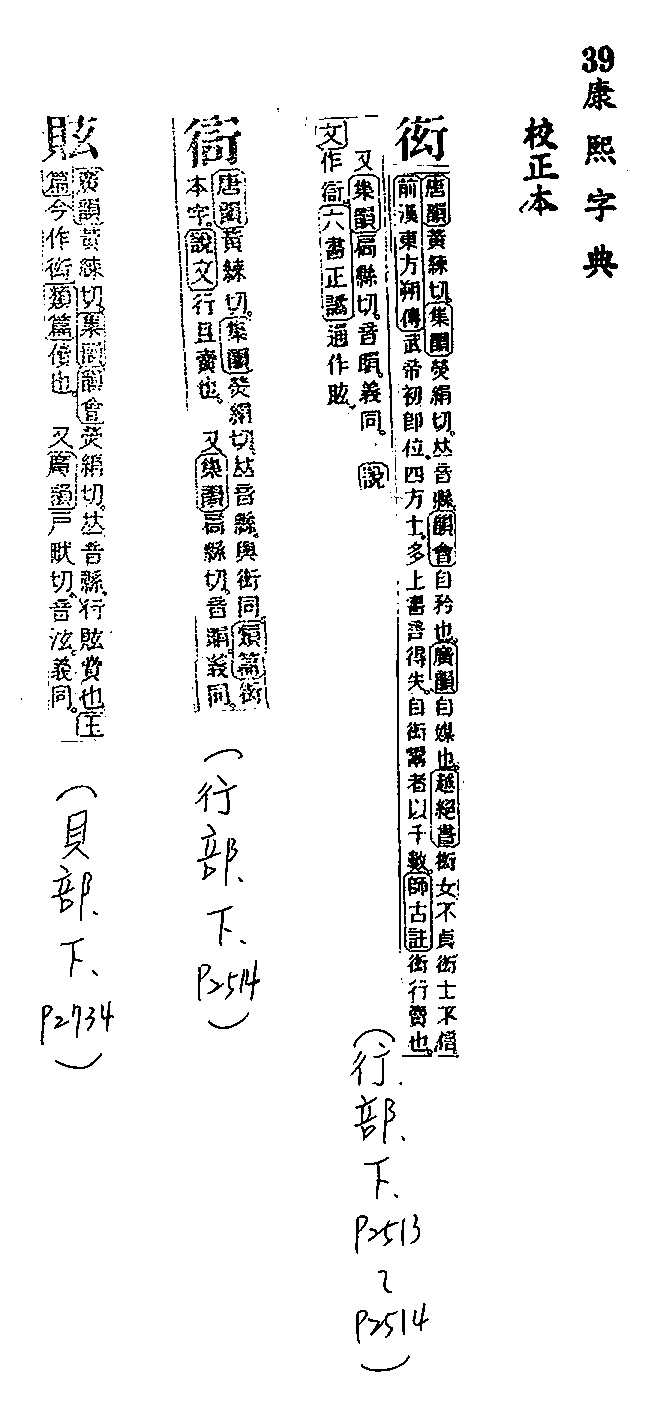 39康熙字典
校正本
衒
唐韻黃練切。集韻熒絹切。𠀤音縣。韻會自矜也。廣韻自媒也。越絕書衒女不貞衒士不信
前漢東方朔傳武帝初卽位。四方士。多上書言得失。自衒鬻者以千數。師古註衒行賣也。
又集韻扃縣切。音䀏。義同。 說
文作衙。六書正譌通作眩。
唐韻黃練切。集韻熒絹切𠀤音縣。與衒同。類篇衒
本字。說文行且賣也。 又集韻扃縣切。音䀏。義同。
廣韻黃練切。集韻韻會熒絹切。𠀤音縣。行賣也。玉
篇今作衒。類篇儥也。 又廣韻戸畎切。音泫。義同。
(行部、下、P2513~P2514)
(行部、下、P2514)
(貝部、下、P2734)